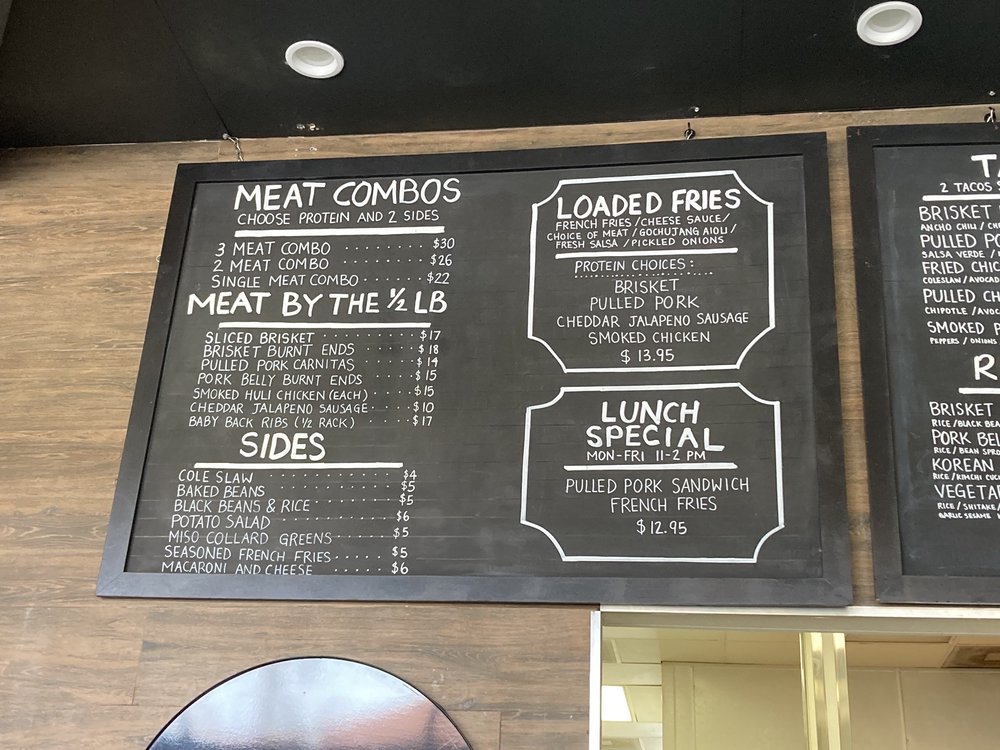 MEAT COMBOS
CHOOSE PROTEIN AND 2 SIDES
3 MEAT COMBO ········ $30
2 MEAT COMBO ········ $26
SINGLE MEAT COMBO ····· $22
MEAT BY THE ½ LB
SLICED BRISKET ········ $17
BRISKET BURNT ENDS ····· $18
PULLED PORK CARNITAS ····· $14
PORK BELLY BURNT ENDS ···· $15
SMOKED HULI CHICKEN (EACH) ···· $15
CHEDDAR JALAPENO SAUSAGE ···· $10
BABY BACK RIBS (½ RACK) ···· $17
SIDES
COLE SLAW ·········· $4
BAKED BEANS ·········· $5
BLACK BEANS & RICE ······· $5
POTATO SALAD ········· $6
MISO COLLARD GREENS ····· $5
SEASONED FRENCH FRIES ····· $5
MACARONI AND CHEESE ····· $6
LOADED FRIES
FRENCH FRIES / CHEESE SAUCE /
CHOICE OF MEAT / GOCHUJANG AIOLI /
FRESH SALSA / PICKLED ONIONS
PROTEIN CHOICES:
BRISKET
PULLED PORK
CHEDDAR JALAPENO SAUSAGE
SMOKED CHICKEN
$13.95
LUNCH
SPECIAL
MON-FRI 11-2 PM
PULLED PORK SANDWICH
FRENCH FRIES
$12.95
2 TACOS
BRISKET
ANCHO CHILI /
PULLED
SALSA VERDE /
FRIED
COLESLAW /
PULLED
CHIPOTLE /
SMOKED
PEPPERS / ONIONS
BRISKET
RICE / BLACK
PORK
RICE / BEAN
KOREAN
RICE / KIMCHI
RICE / SHITAKE /
GARLIC SESAME